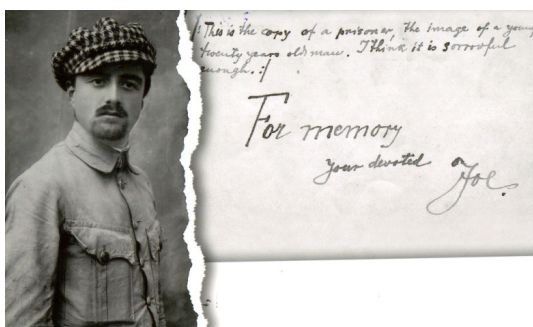 /: This is the copy of a prisoner, the image of a young
twenty years old man. I think it is sorrowful
enough. :/
For memory
your devoted Joe.